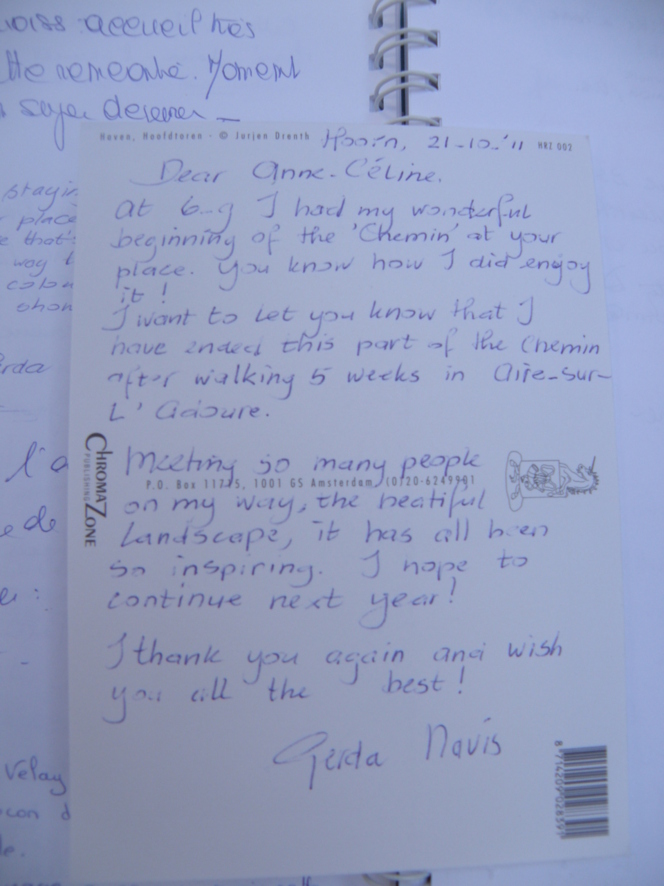 accueil très
Moment
stayin
place
way
Haven, Hoofdtoren - © Jurjen Drenth
HRZ 002
Hoorn, 21-10-'11
Dear Anne-Céline.
At 6-9 I had my wonderful
beginning of the 'Chemin' at your
place. You know how I did enjoy
it!
I want to let you know that I
have ended this part of the Chemin
after walking 5 weeks in Aire-sur-
L'Adoure.
CHROMAZONE
PUBLISHING
Meeting so many people
P.O. Box 11715, 1001 GS Amsterdam, (0)20-6249901
on my way, the beatiful
landscape, it has all been
so inspiring. I hope to
continue next year!
I thank you again and wish
you all the best!
Gerda Navis
Velay